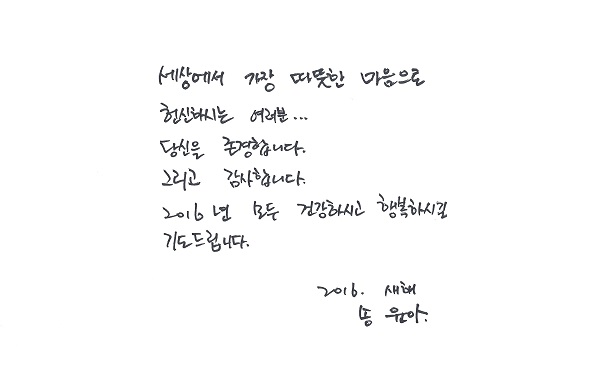 세상에서 가장 따뜻한 마음으로
헌신하시는 여러분...
당신을 존경합니다.
그리고 감사합니다.
2016년 모두 건강하시고 행복하시길
기도드립니다.
2016. 새해
송윤아.